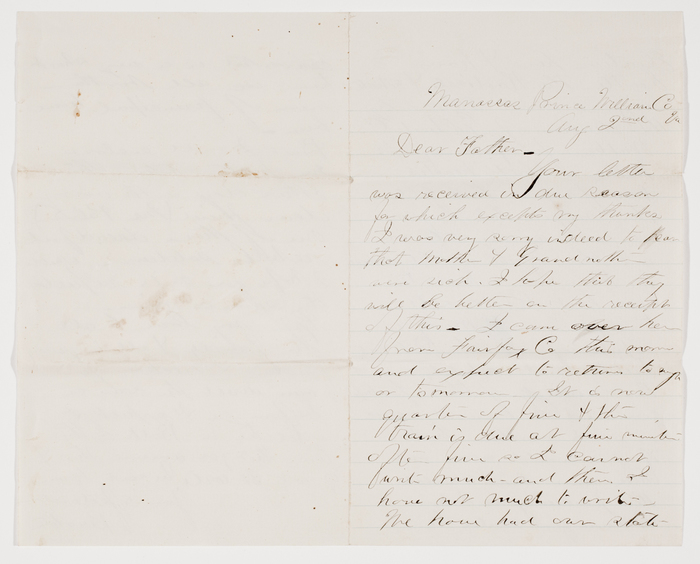 Manassas Prince William Co Va
Aug 2nd
Dear Father -
Your letter
was received in due season
for which except my thanks
I was very sorry indeed to hear
that Mother & Grandmother
were sick. I hope that they
will be better on the receipt
of this - I came over here
from Fairfax Co this morn
and expect to return to
or tomorrow It is now
quarter of five & the
train is due at five minutes
of five so I cannot
write much - and then I
have not much to write -
We have had our state